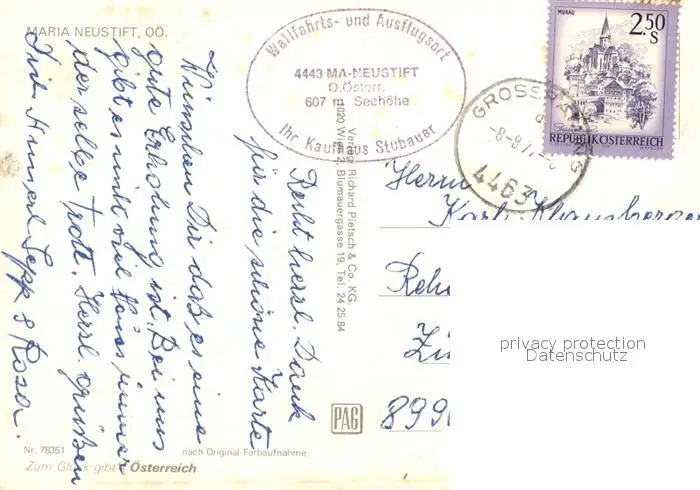 MARIA NEUSTIFT, OÖ.
Wallfahrts- und Ausflugsort
4443 MA-NEUSTIFT
O.Österr.
607 m Seehöhe
Ihr Kaufhaus Stubauer
MURAU
2.50
S
REPUBLIK ÖSTERREICH
GROSSRAMING
-8-8.7
4463
Recht herzl. Dank
für die schöne Karte
Wünschen Dir daß es eine
gute Erholung ist. Bei uns
gibt es nicht viel Neues immer
der selbe Trott. Herzl. grüßen
Sepp & Rosa.
Verlag Richard Pietsch & Co. KG.
1020 Wien 2, Blumauergasse 19, Tel. 24 25 84
Herrn
Karl
Reh
899
PAG
privacy protection
Datenschutz
Nr. 78351
nach Original-Farbaufnahme
Zum Glück gibt's Österreich